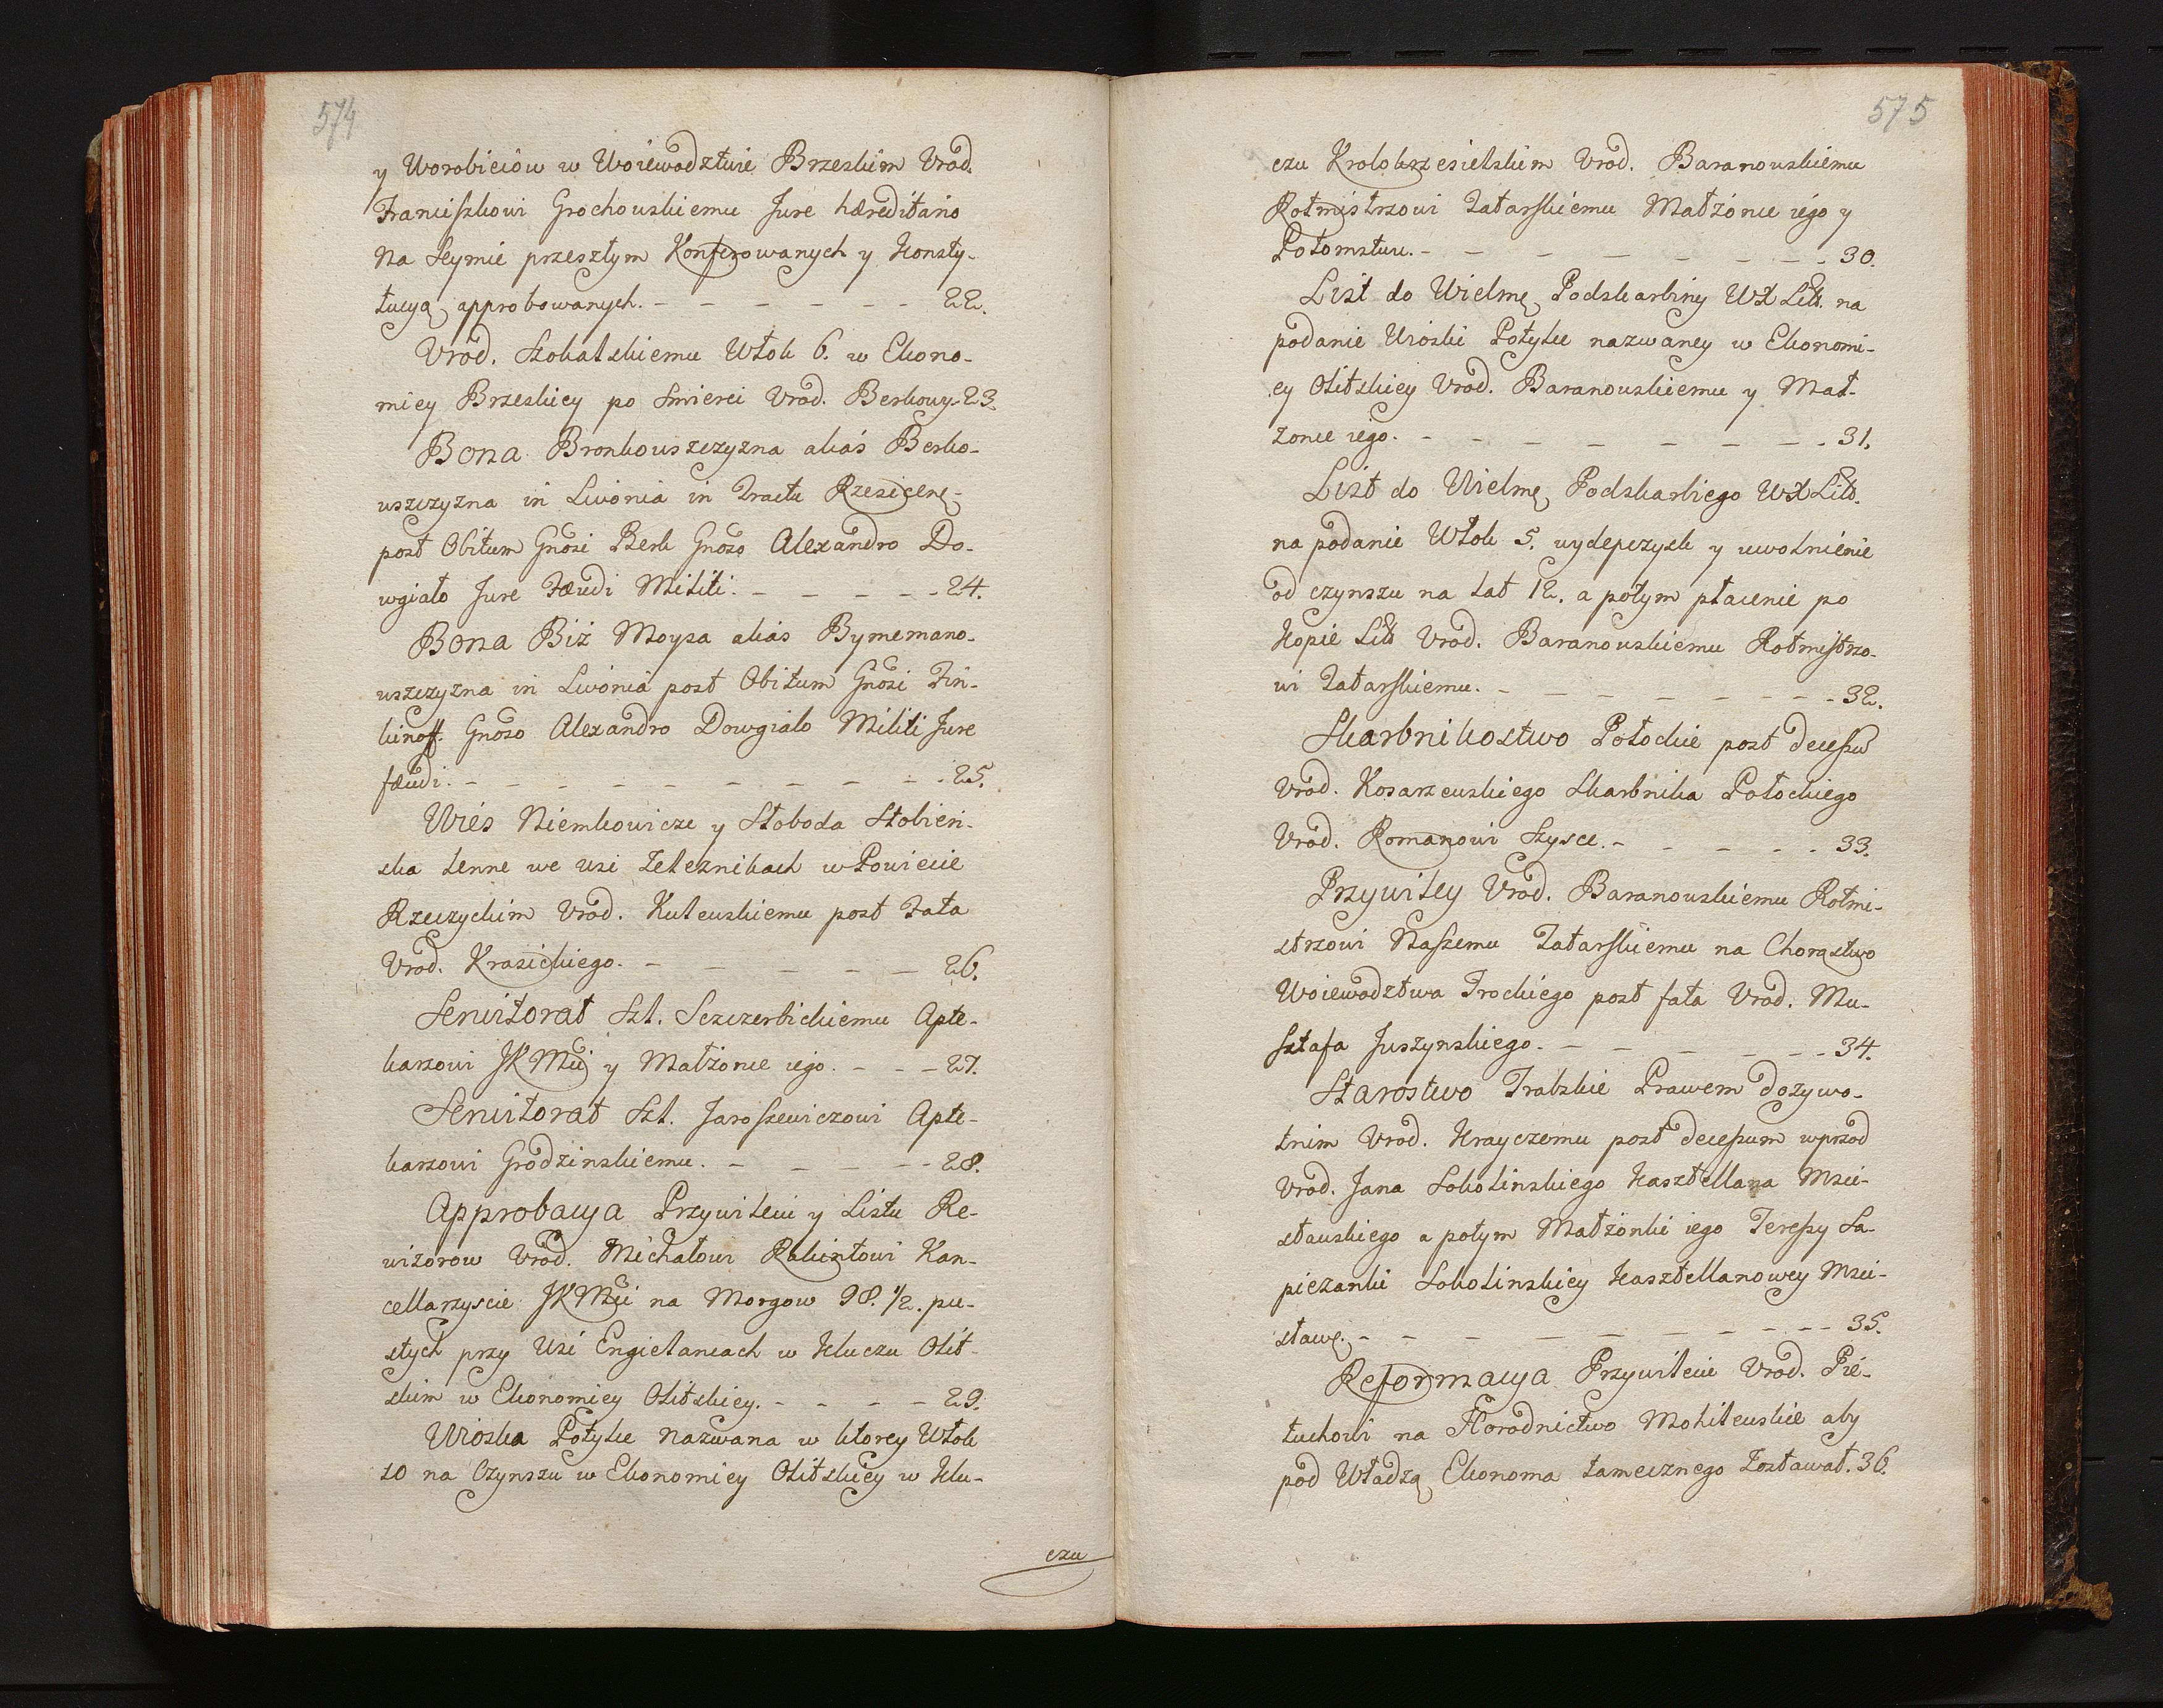 574
y Worobieiow w Woiewodztwie Brzeskim Vrod.
Franciszkowi Grochowskiemu Jure hæreditario
Na Seymie przeszłym Konferowanych y Konsty-
tucyą approbowanych. - - - - - - - 22.
Vrod. Szokalskiemu Włok 6. w Ekono-
miey Brzeskiey po Smierci Vrod. Berkowy. 23.
Bona Bronkowszczyzna alias Berko-
wszczyzna in Livonia in Tractu
post Obitum Gnosi Berk Gnoso Alexandro Do-
wgiało Jure Fæudi Militi. - - - - - 24.
Bona Biż Moysa alias Bymemano-
wszczyzna in Livonia post Obitum Gnosi Fin-
kinoff. Gnoso Alexandro Dowgiało Militi Jure
fæudi. - - - - - - - - - 25.
Wieś Niemkowicze y Słoboda Słobień-
ska lenne we wsi Zeleznikach w Powiecie
Rzeczyckim Vrod. Kulewskiemu post Fata
Vrod. Krasickiego. - - - - - - 26.
Servitorat Szl. Szczerbickiemu Apte-
karzowi JKMci y Małżonce iego. - - - 27.
Servitorat Szl. Jaroszewiczowi Apte-
karzowi Grodzinskiemu. - - - - - 28.
Approbacya Przywileiu y Listu Re-
wizorow Vrod. Michałowi Rakintowi Kan-
cellarzyscie JKMci na Morgow 98. 1/2. pu-
stych przy Wsi Engielaniach w Kluczu Olit-
skim w Ekonomiey Olitskiey. - - - - 29.
Wioska Połyle Nazwana w ktorey Włok
10 na Czynszu w Ekonomiey Olitskiey w Klu-
czu
575
czu Krolokrzesielskim Vrod. Baranowskiemu
Rotmistrzowi Tatarskiemu Małżonce iego y
Potomstwu. - - - - - - - - 30.
List do Wielmę Podskarbiny WXLitt. na
podanie Wioski Połyle nazwaney w Ekonomi-
ey Olitskiey Vrod. Baranowskiemu y Mał-
zonce iego. - - - - - - - - 31.
List do Wielmę Podskarbiego WXLitt.
na podanie Włok 5. wydepczysk y uwolnienie
od czynszu na lat 12. a potym płacenie po
Kopie Litt Vrod. Baranowskiemu Rotmistrzo-
wi Tatarskiemu. - - - - - - - 32.
Skarbnikostwo Połockie post decessu
Vrod. Kosarzewskiego Skarbnika Połockiego
Vrod. Romanowi Szysce. - - - - - 33.
Przywiley Vrod. Baranowskiemu Rotmi-
strzowi Naszemu Tatarskiemu na Chorąstwo
Woiewodztwa Trockiego post fata Vrod. Mu-
sztafa Juszynskiego. - - - - - - - 34.
Starostwo Trabskie Prawem dozywo-
tnim Vrod. Krayczemu post decessum wprzod
Vrod. Jana Sokolinskiego Kasztellana Msci-
sławskiego a potym Małżonki iego Teressy Sa-
piezanki Sokolinskiey Kasztellanowey Msci-
sławę. - - - - - - - - - 35.
Reformacya Przywileiu Vrod. Pie-
tuchowi na Horodnictwo Mohilewskie aby
pod Władzą Ekonoma tamecznego Zostawał. 36.